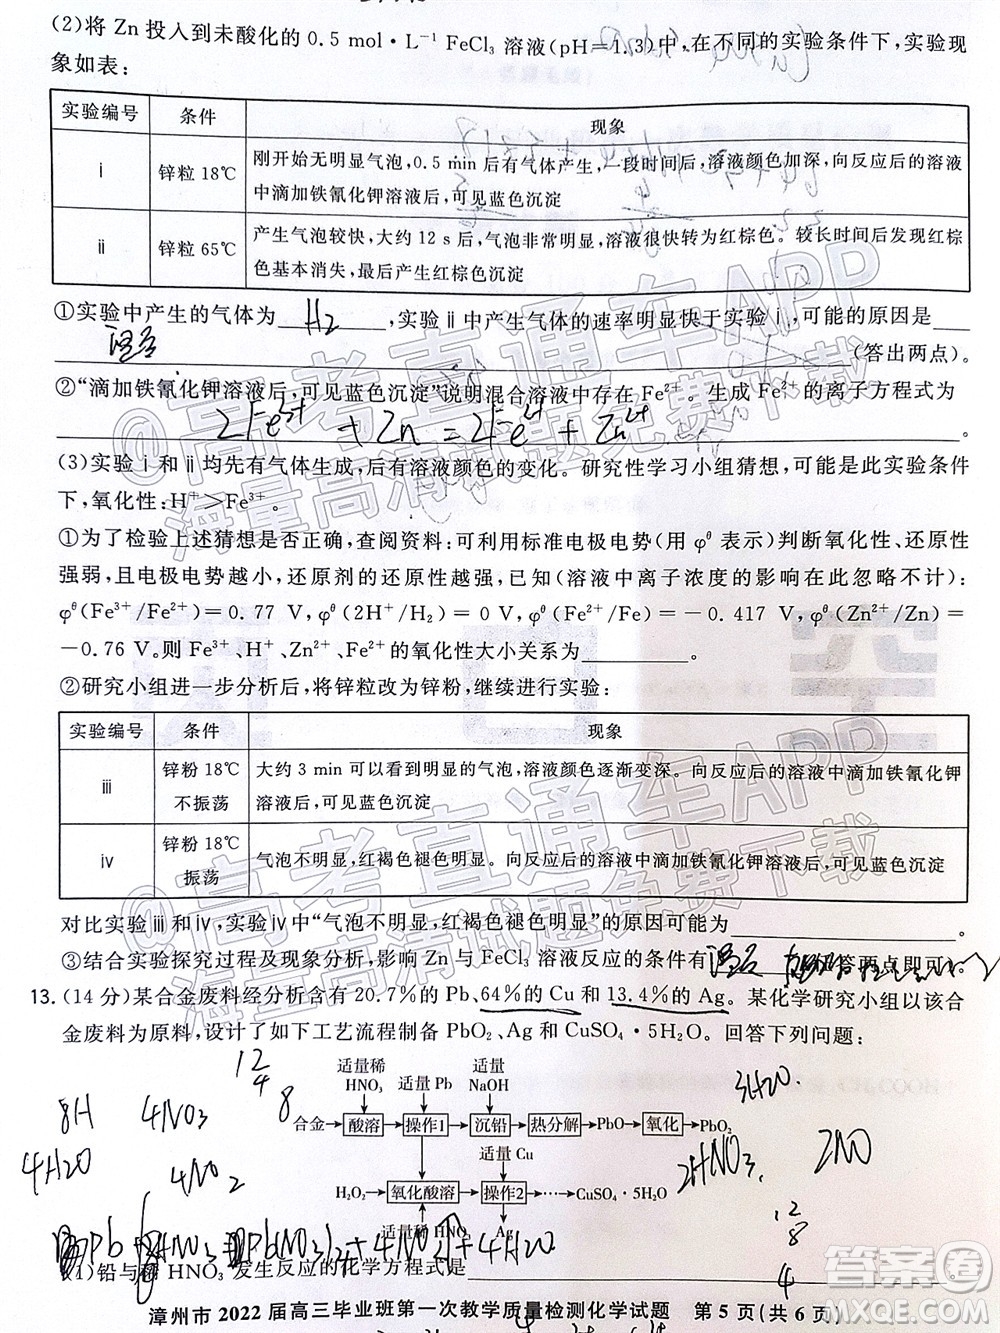 (2)将 Zn 投入到未酸化的 0.5 mol·L⁻¹ FeCl₃ 溶液(pH=1.3)中,在不同的实验条件下,实验现
象如表:
实验编号 条件 现象
ⅰ 锌粒 18℃ 刚开始无明显气泡,0.5 min 后有气体产生,一段时间后,溶液颜色加深,向反应后的溶液
中滴加铁氰化钾溶液后,可见蓝色沉淀
ⅱ 锌粒 65℃ 产生气泡较快,大约 12 s 后,气泡非常明显,溶液很快转为红棕色。较长时间后发现红
棕色基本消失,最后产生红棕色沉淀
①实验中产生的气体为 H2 ,实验ⅱ中产生气体的速率明显快于实验ⅰ,可能的原因是
温度 (答出两点)。
②“滴加铁氰化钾溶液后,可见蓝色沉淀”说明混合溶液中存在 Fe²⁺。生成 Fe²⁺ 的离子方程式为
2Fe³⁺ + Zn = 2Fe²⁺ + Zn²⁺ 。
(3)实验ⅰ和ⅱ均先有气体生成,后有溶液颜色的变化。研究性学习小组猜想,可能是此实验条件
下,氧化性:H⁺>Fe³⁺。
①为了检验上述猜想是否正确,查阅资料:可利用标准电极电势(用 φ^θ 表示)判断氧化性、还原性
强弱,且电极电势越小,还原剂的还原性越强,已知(溶液中离子浓度的影响在此忽略不计):
φ^θ(Fe³⁺/Fe²⁺)=0.77 V,φ^θ(2H⁺/H₂)=0 V,φ^θ(Fe²⁺/Fe)=-0.417 V,φ^θ(Zn²⁺/Zn)=
-0.76 V.则 Fe³⁺、H⁺、Zn²⁺、Fe²⁺ 的氧化性大小关系为 。
②研究小组进一步分析后,将锌粒改为锌粉,继续进行实验:
实验编号 条件 现象
ⅲ 锌粉 18℃ 不振荡 大约 3 min 可以看到明显的气泡,溶液颜色逐渐变深。向反应后的溶液中滴加铁氰化钾
溶液后,可见蓝色沉淀
ⅳ 锌粉 18℃ 振荡 气泡不明显,红褐色褪色明显。向反应后的溶液中滴加铁氰化钾溶液后,可见蓝色沉淀
对比实验ⅲ和ⅳ,实验ⅳ中“气泡不明显,红褐色褪色明显”的原因可能为 。
③结合实验探究过程及现象分析,影响 Zn 与 FeCl₃ 溶液反应的条件有 温度 答两点即可)。
13.(14 分)某合金废料经分析含有 20.7%的 Pb、64%的 Cu 和 13.4%的 Ag。某化学研究小组以该合
金废料为原料,设计了如下工艺流程制备 PbO₂、Ag 和 CuSO₄·5H₂O。回答下列问题:
适量稀 HNO₃ 适量 Pb 适量 NaOH
合金 酸溶 操作1 沉铅 热分解 PbO 氧化 PbO₂
适量 Cu
H₂O₂ 氧化酸溶 操作2 … CuSO₄·5H₂O
适量稀 HNO₃ Ag
12
4
8
8H
4NO3
4H2O
4NO2
3H2O
2HNO3
2NO
12
8
4
(1)铅与稀 HNO₃ 发生反应的化学方程式是 。
漳州市 2022 届高三毕业班第一次教学质量检测化学试题 第 5 页(共 6 页)
@高考直通车APP
海量高清试题免费下载
@高考直通车APP
海量高清试题免费下载
答案圈
MXQE.COM